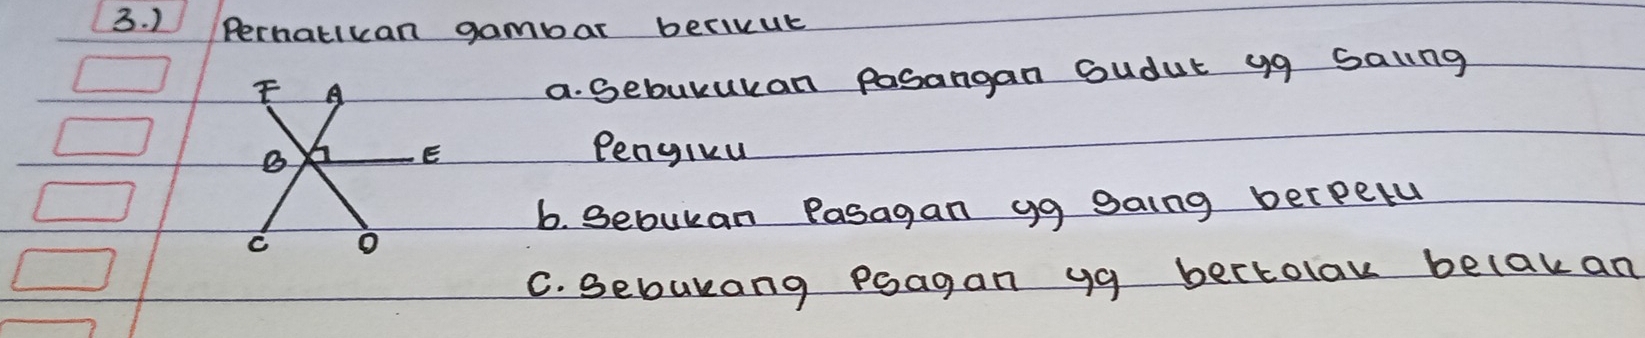 3.) Perhatikan gambar berikut
F A
a. Sebukukan Pasangan Sudut yg Saling
B E
Penyiku
b. Sebukan Pasagan yg Saing berpelu
C D
C. Sebukang Psagan yg bertolak belakan